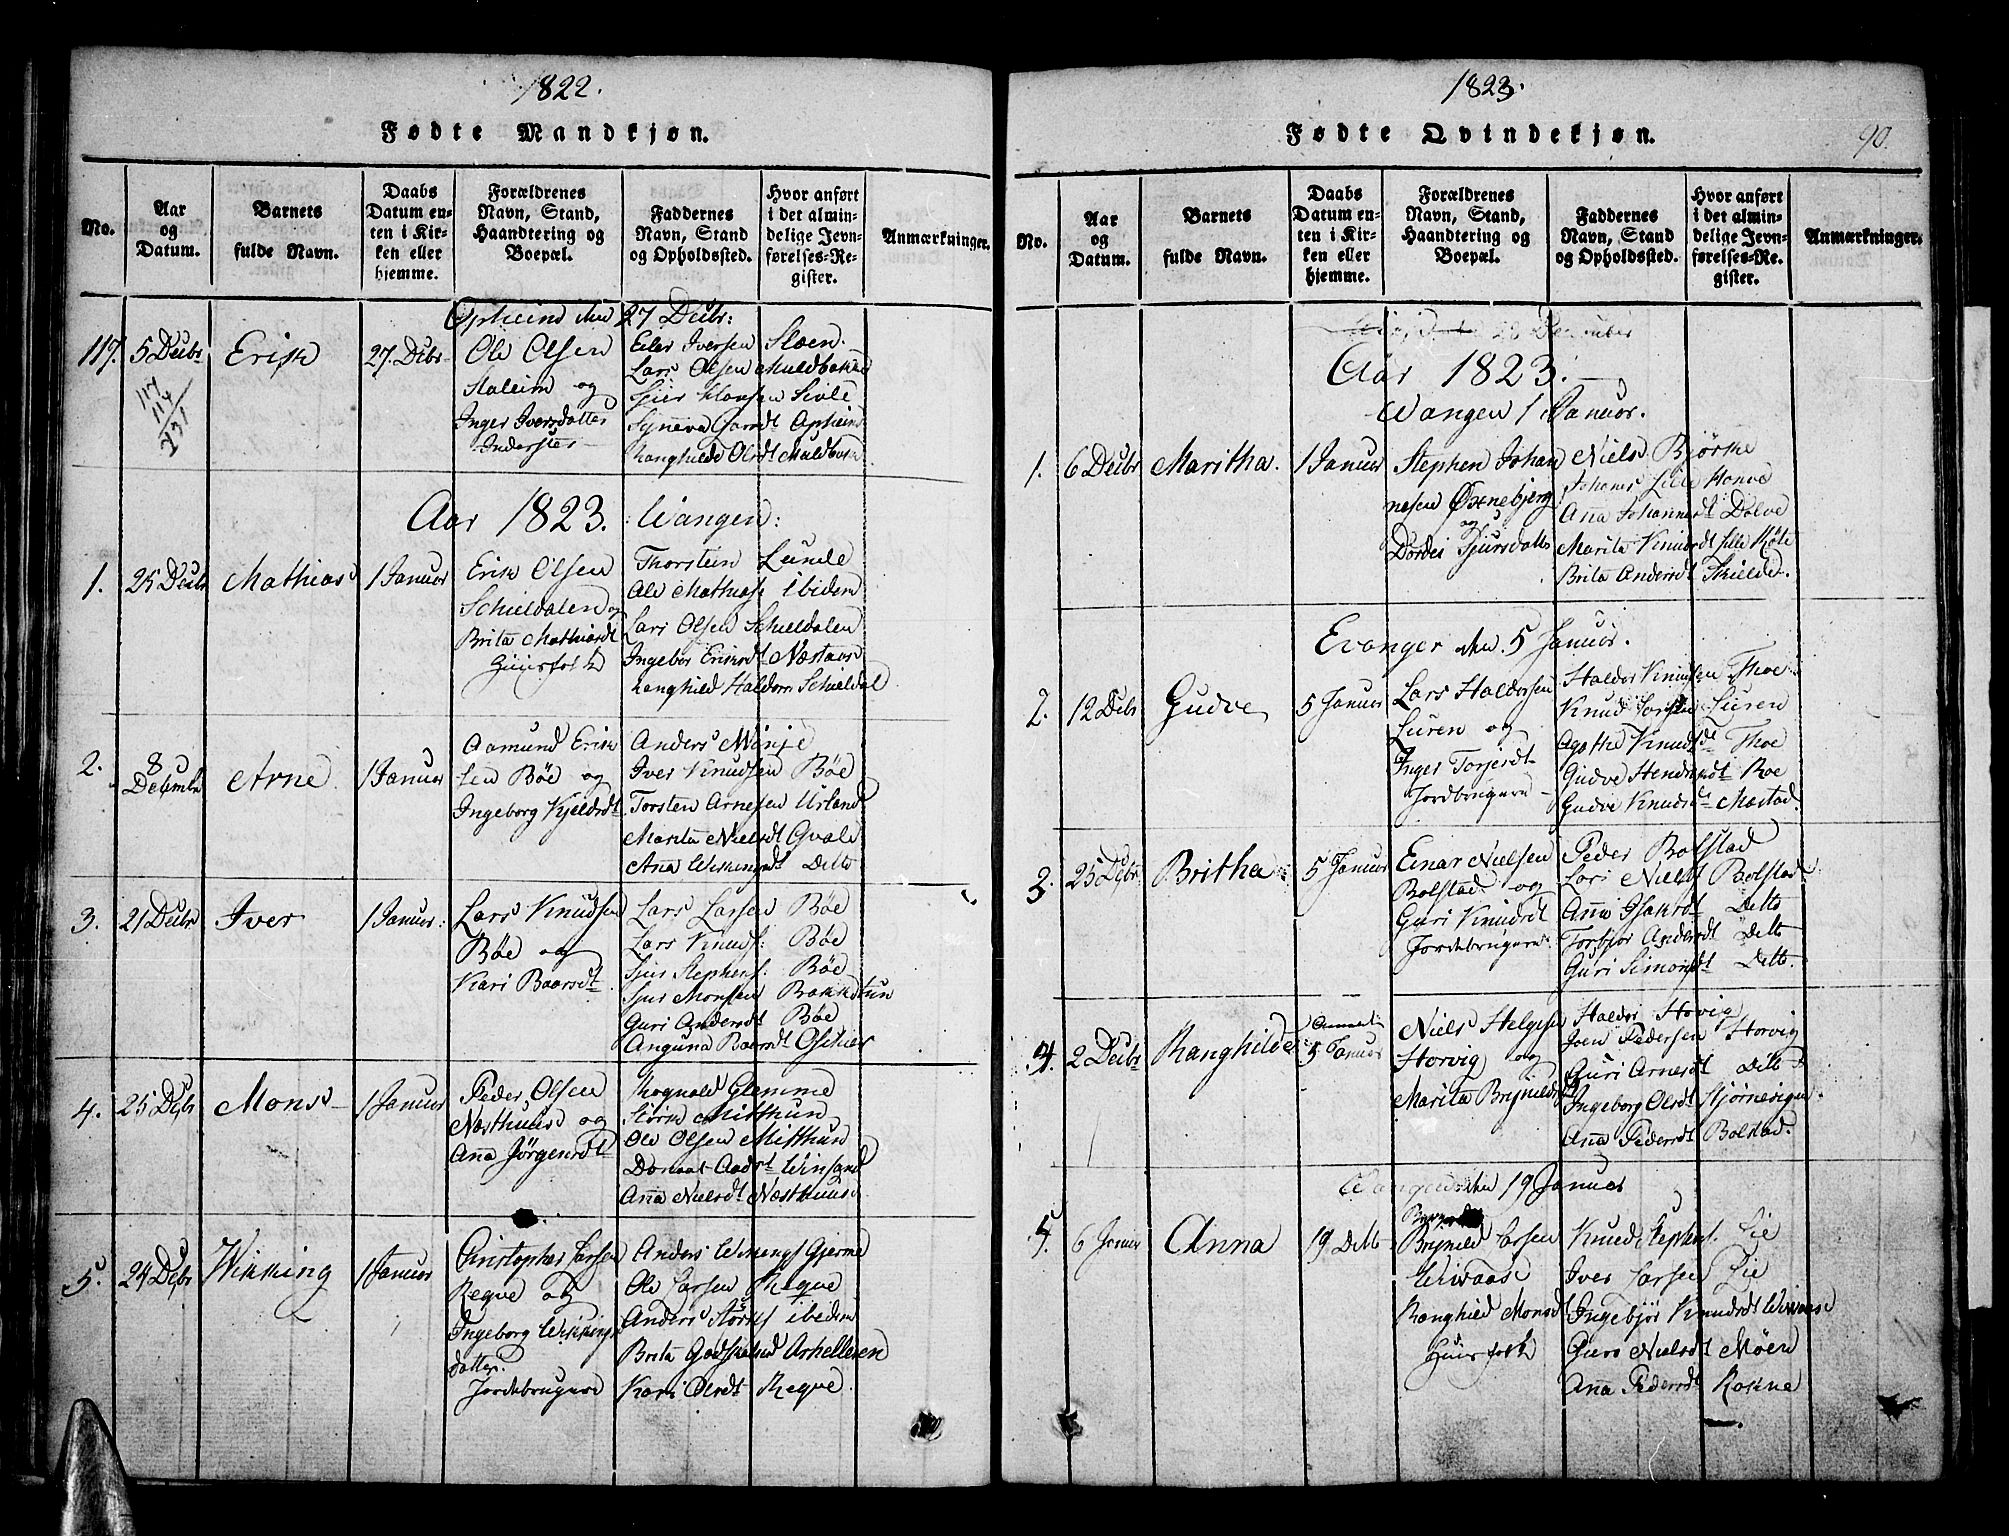 1822.
Fødte Mandkjøn.
No.
Aar
og
Datum.
Barnets
fulde Navn.
Daabs
Datum en-
ten i Kir-
ken eller
hjemme.
Forældrenes
Navn, Stand,
Haandtering og
Boepæl.
Faddernes
Navn, Stand
og Opholdssted.
Hvor anført
i det almin-
delige Jevn-
førelses-Re-
gister.
Anmærkninger.
Opheim den 27 Decbr:
117. 5 Decbr Erik 27. Debr
117
114
231
Ole Olsen
Staleim og
Inger Iversdatter
Inderster
Eiler Iversen Slæen.
Lars Olsen Muldbakke
Sjur Hansen Sivle
Synneva Opheim
Ranghilde Olsdt Muldbak
Aar 1823. Wangen:
1. 25 Decbr Mathias 1 Januor
Erik Olsen
Schieldalen og
Brita Mathiasdt
Huusfolk
Thorstein Lunde
Ole Mathias ibidem
Lars Olsen Schieldalen
Ingebor Eriksdt Næstaas
Ranghild Haldors Schieldal
2. 8 Decembr Arne 1 Januor
Aamund Erik
sen Bøe og
Ingeborg Kjeldsdt
Anders Winje
Iver Knudsen Bøe
Torsten Arnesen Urland
Marita Nielsdt Qvale
Ana Wikingsdt Ditto
3. 21 Decbr Iver 1 Januor:
Lars Knudsen
Bøe og
Kari Baarsdt
Lars Larsen Bøe
Lars Knuds: Bøe
Sjur Stephens: Bøe
Sjur Monsen Bakketun
Guri Andersdt Bøe
Anguna Baarsdt
4. 25 Debr Mons 1 Januor
Peder Olsen
Næsthuus og
Ana Jørgensdt
Rognald Glemme
Størk Mitthun
Ole Olsen Mitthun
Winsand
Ana Nielsdt Næsthuus
5. 24 Debr Wikking 1 Januor
Christopher Larsen
Reqve og
Ingeborg Wikkings
datter.
Jordebrugere
Anders Wikings Gjerme
Ole Larsen Reqve
Anders Størks ibidem
Brita Godskalksd
Kari Olsdt Reqve
1823.
90.
Fødte Qvindekjøn.
No.
Aar
og
Datum.
Barnets
fulde Navn.
Daabs
Datum en-
ten i Kir-
ken eller
hjemme.
Forældrenes
Navn, Stand,
Haandtering og
Boepæl.
Faddernes
Navn, Stand
og Opholdssted.
Hvor anført
i det almin-
delige Jevn-
førelses-Re-
gister.
Anmærkninger.
December
Aar 1823.
Wangen 1 Januor.
1. 6 Decbr Maritha. 1 Januor
Stephen Johan
nesen Øxnebjerg
og
Dordei Sjursdatter
Niels Bjørke
Johanes Lille Honve
Ana Johannesdt Dolve
Marita Knudsdt lille Røte
Brita Andersdt Skielde.
Evanger den 5 Januor.
2. 12 Debr Gudve 5 Januor
Lars Haldorsen
Luren og
Inger Torjersdt
Jordbrugere
Haldor Knudsen Thoe
Knud Luren
Agotha Knudsdt Thoe
Gudve Hendriksdt Roe
Gudve Knudsdt Mæstad.
3. 25 Debr Britha 5 Januor
Einar Nielsen
Bolstad og
Guri Knudsdt
Jordebrugere.
Peder Bolstad
Lars Niels Bolstad
Ana Isaksdt Ditto
Torbjør Andersdt Ditto
Guri Simonsdt Ditto.
4. 2 Decbr Ranghilde 5 Januor
Niels Helgesen
Horvig og
Marita Brynildsdt
Haldor Horvig
Joen Pedersen Horvig
Guri Arnesdt Ditto
Ingeborg Olsdt
Ana Pedersdt Bolstad.
Wangen den 19 Januor
5. 6 Januor Anna 19 Ditto
Brynild Larsen
Wivaase
Ranghild Monsdt
Huusfolk
Knud Stephens. Lie
Iver Larsen Lie
Ingebjør Knudsdt Wivaase
Guro Nielsdt Møen
Ana Pedersdt Rokne